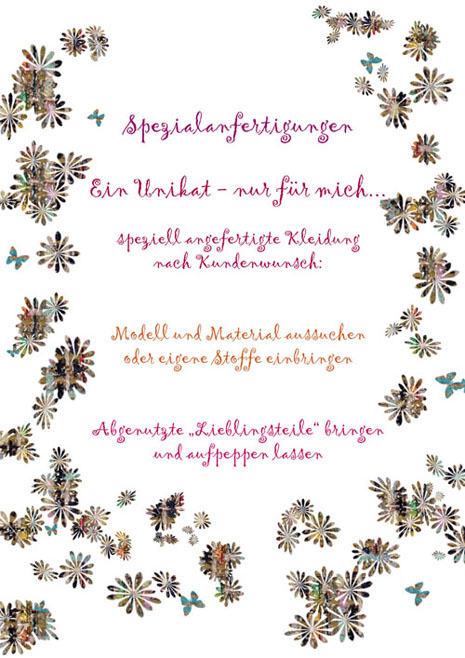 Spezialanfertigungen
Ein Unikat – nur für mich...
speziell angefertigte Kleidung
nach Kundenwunsch:
Modell und Material aussuchen
oder eigene Stoffe einbringen
Abgenutzte „Lieblingsteile“ bringen
und aufpeppen lassen